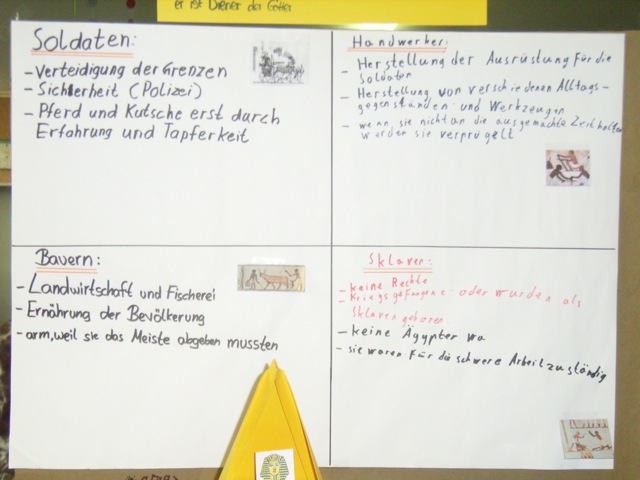 er ist Diener der Götter
Soldaten:
- Verteidigung der Grenzen
- Sicherheit (Polizei)
- Pferd und Kutsche erst durch
Erfahrung und Tapferkeit
Handwerker:
- Herstellung der Ausrüstung für die
Soldaten
- Herstellung von verschiedenen Alltags-
gegenständen und Werkzeugen
- wenn sie nicht an die ausgemachte Zeit halten
werden sie verprügelt
Bauern:
- Landwirtschaft und Fischerei
- Ernährung der Bevölkerung
- arm, weil sie das Meiste abgeben mussten
Sklaven:
- keine Rechte
- Kriegsgefangene oder wurden als
Sklaven geboren
- keine Ägypter
- sie waren für die schwere Arbeit zuständig